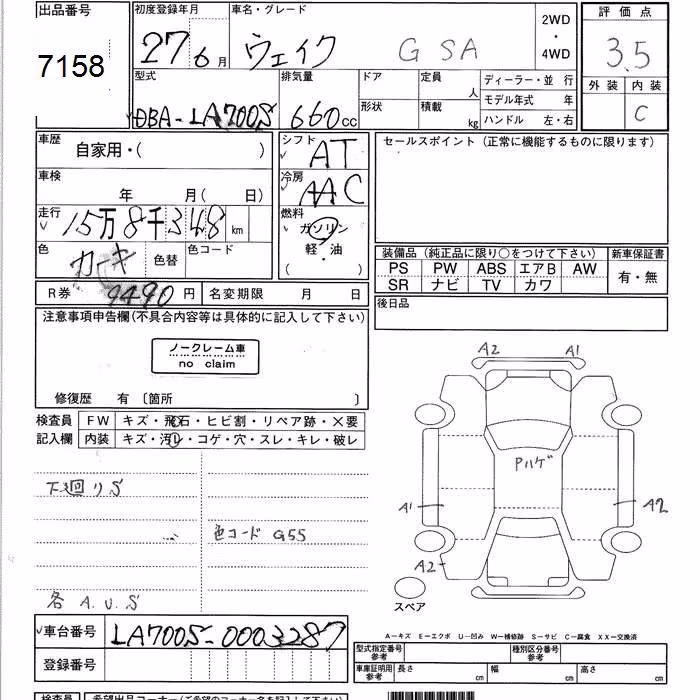 出品番号 初度登録年月 車名・グレード 2WD ・ 4WD 評価点
7158 27 6月 ウェイク G SA 3.5
型式 排気量 ドア 定員 人 ディーラー・並 行 外装 内装
形状 積載 kg モデル年式 年 C
DBA-LA700S 660cc ハンドル 左・右
車歴 自家用・( ) シフト AT セールスポイント (正常に機能するものに限ります)
車検 年 月(日) 冷房 AAC
走行 15万8千348km 燃料 ガソリン
軽・油
( )
色 カーキ 色替 色コード
装備品 (純正品に限り○をつけて下さい) 新車保証書
PS PW ABS エアB AW 有・無
SR ナビ TV カワ
R券 9490円 名変期限 月 日 後日品
注意事項申告欄(不具合内容等は具体的に記入して下さい)
ノークレーム車
no claim
修復歴 有 〔箇所 〕
検査員 FW キズ・飛石・ヒビ割・リペア跡・X要
記入欄 内装 キズ・汚レ・コゲ・穴・スレ・キレ・破レ
A2 A1
Pハゲ
A1 A2
A2
スペア
下廻りS
色コード G55
各 A.U.S
A-キズ E-エクボ U-凹み W-補修跡 S-サビ C-腐食 XX-交換済
車台番号 LA700S-0003287
登録番号
型式指定番号 参考 種別区分番号 参考
車庫証明用 参考 長さ cm 幅 cm 高さ cm
検査員 希望出品コーナー(ご希望のコーナー名を記入)